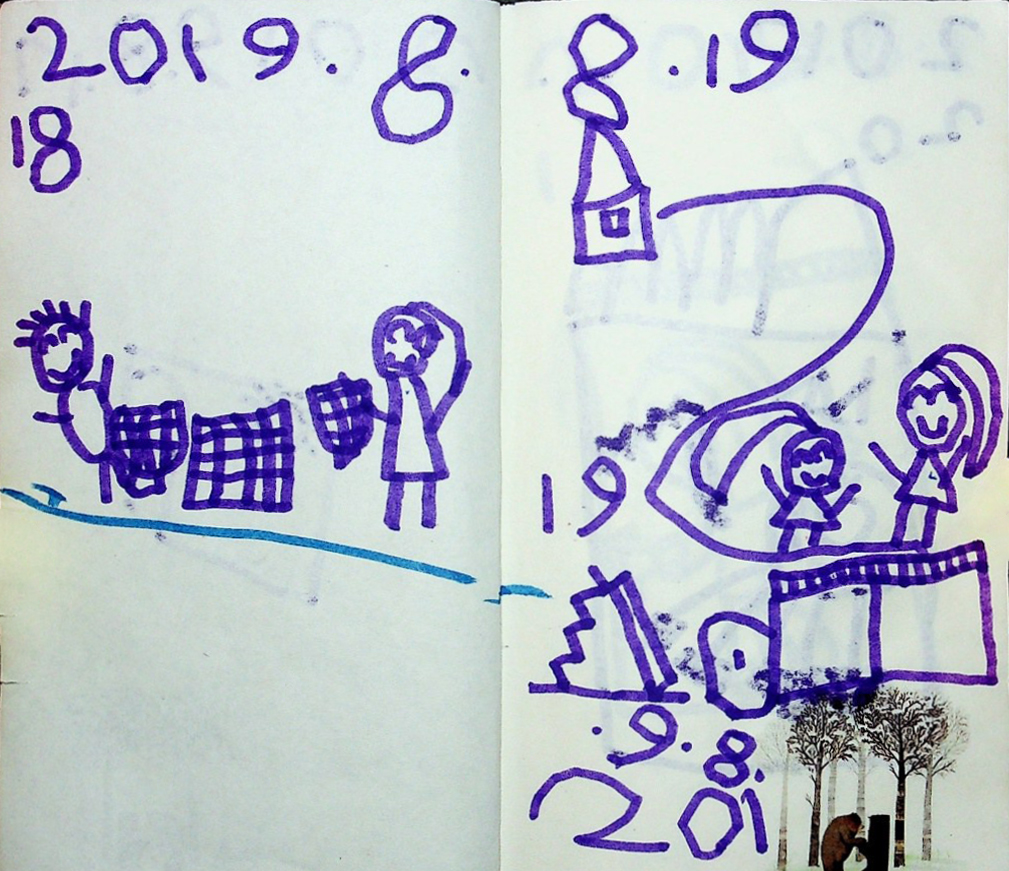 2019. 8.
18
8.19
19
.9.8.
201